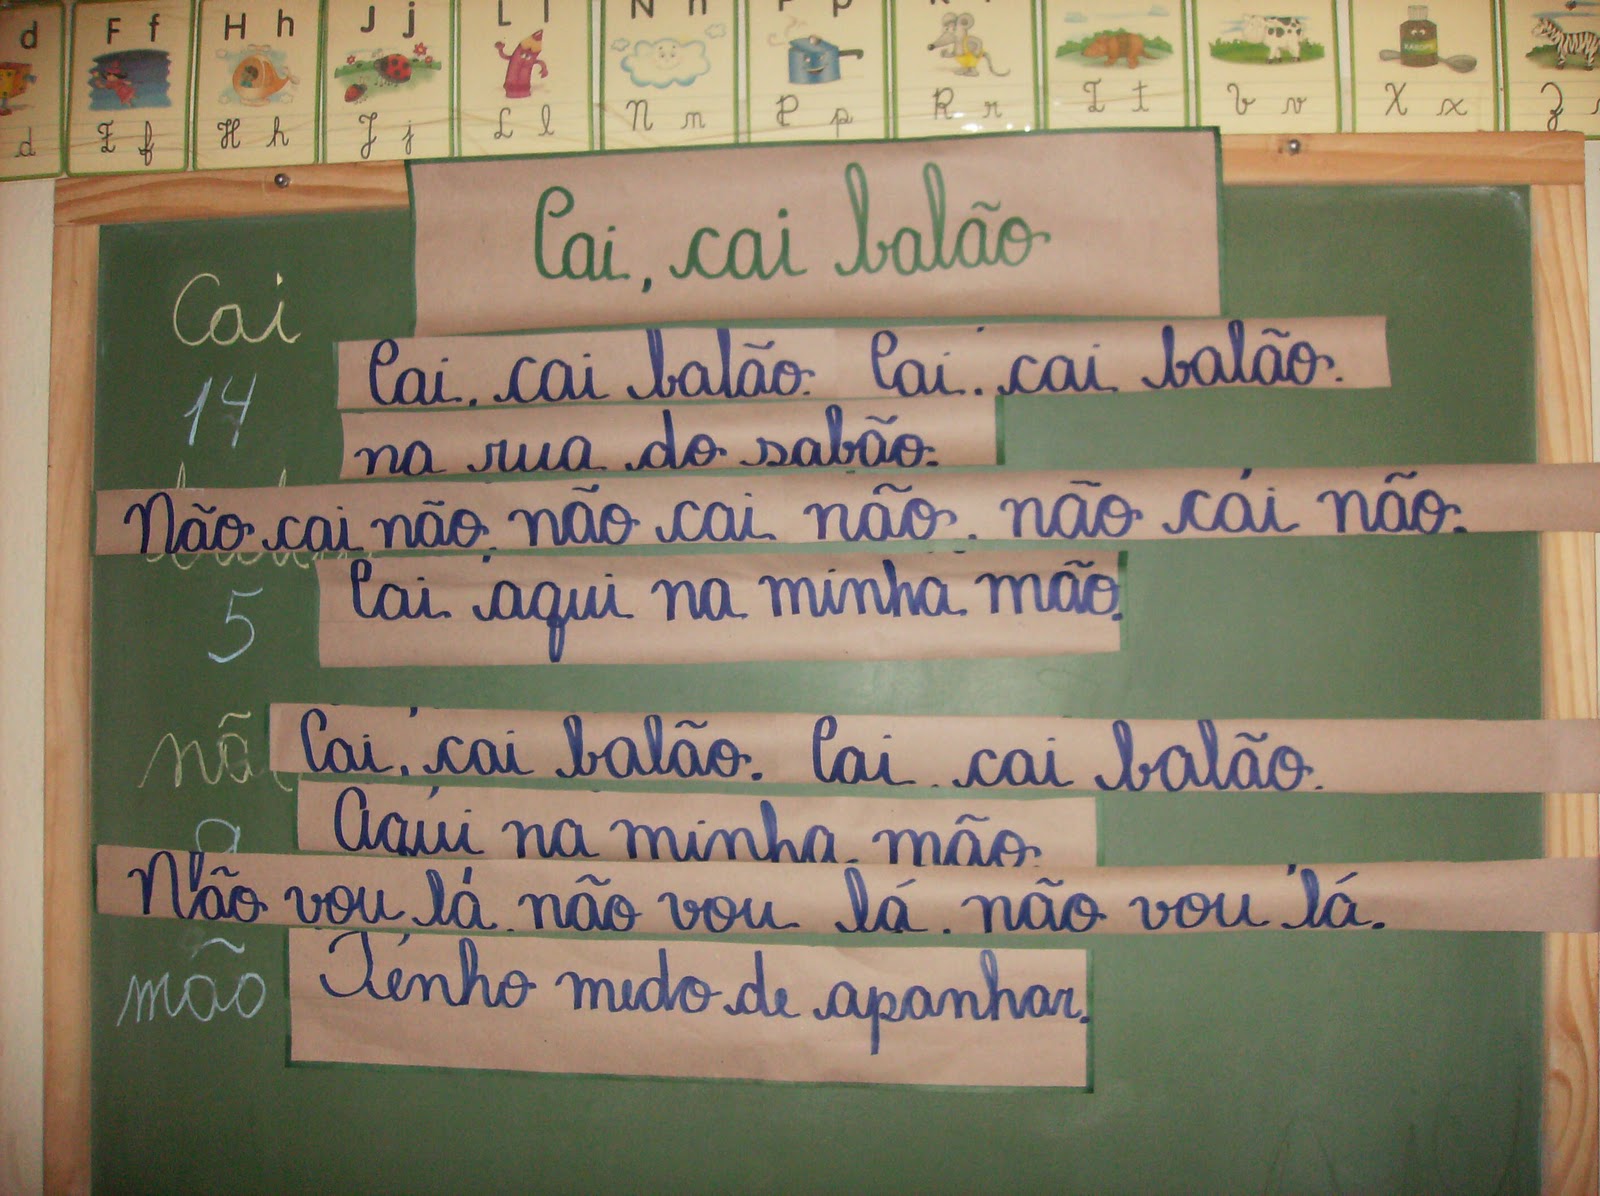 d F f H h J j L l N n P p
d F f H h J j L l N n P p R r T t V v X x Z
Cai, cai balão
Cai
14
Cai, cai balão. Cai, cai balão.
na rua do sabão.
Não cai não, não cai não, não cai não.
5
Cai aqui na minha mão.
nã
Cai, cai balão. Cai, cai balão.
Aqui na minha mão.
Não vou lá, não vou lá, não vou lá.
mão
Tenho medo de apanhar.